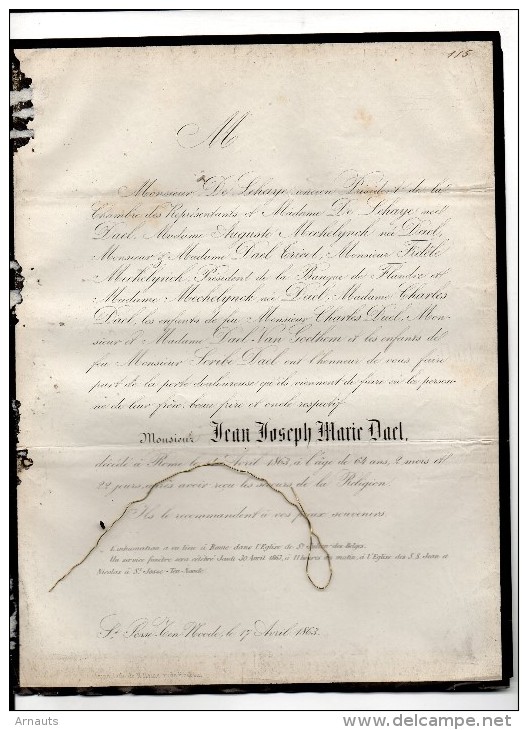 115
M
Monsieur De Lehaye, ancien Président de la
Chambre des Représentants et Madame De Lehaye née
Dael, Madame Auguste Mechelynck née Dael,
Monsieur & Madame Dael Monsieur Fidèle
Mechelynck, Président de la Banque de Flandre et
Madame Mechelynck née Dael, Madame Charles
Dael, les enfants de feu Monsieur Charles Dael, Mon-
sieur et Madame Dael-Van Goethem et les enfants de
feu Monsieur Dael ont l'honneur de vous faire
part de la perte douloureuse qu'ils viennent de faire en la person-
ne de leur frère, beau frère et oncle respectif
Monsieur Jean Joseph Marie Dael,
décédé à Rome le Avril 1863, à l'âge de 64 ans, 2 mois et
22 jours, après avoir reçu les secours de la Religion.
Ils le recommandent à vos pieux souvenirs.
L'inhumation a eu lieu à Rome dans l'Eglise de St des Belges.
Un service funèbre sera célébré Jeudi 30 Avril 1863, à 11 heures du matin, à l'Eglise des S.S. Jean et
Nicolas à St Josse-Ten-Noode.
St Josse-Ten-Noode, le 17 Avril 1863.
Arnauts
delcampe.net